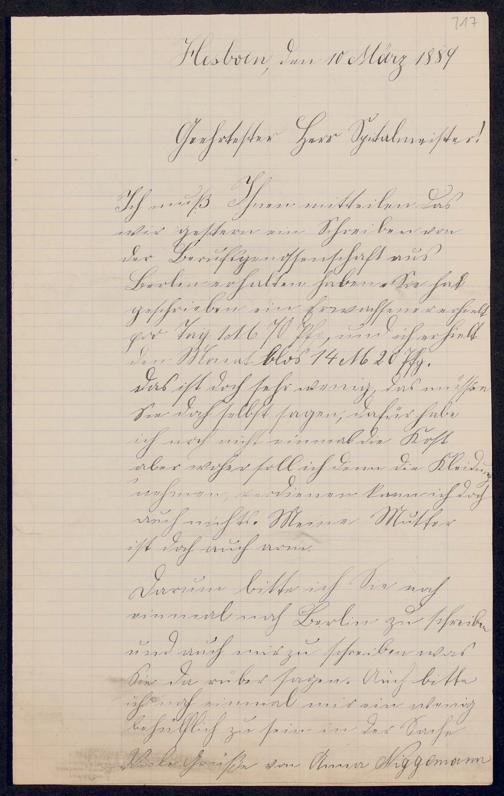 317
Hesborn, den 10 März 1889
Geehrtester Herr Spitalmeister!
Ich muß Ihnen mitteilen das
wir gestern ein Schreiben von
der Berufsgenossenschaft aus
Berlin erhalten haben. Sie hat
geschrieben ein Erwachsener erhielt
pro Tag 1 M 70 Pfg, und ich erhielt
den Monat blos 14 M 20 Pfg.
Das ist doch sehr wenig, das müssen
Sie doch selbst sagen, dafür habe
ich noch nicht einmal die Kost
aber woher soll ich denn die Kleidung
nehmen, verdienen kann ich doch
auch nichts. Meine Mutter
ist doch auch arm.
Darum bitte ich Sie noch
einmal nach Berlin zu schreiben
und auch mir zu schreiben was
Sie da rüber sagen. Auch bitte
ich noch einmal mir ein wenig
behülflich zu sein in der Sache
Viele Grüße von Anna Niggemann